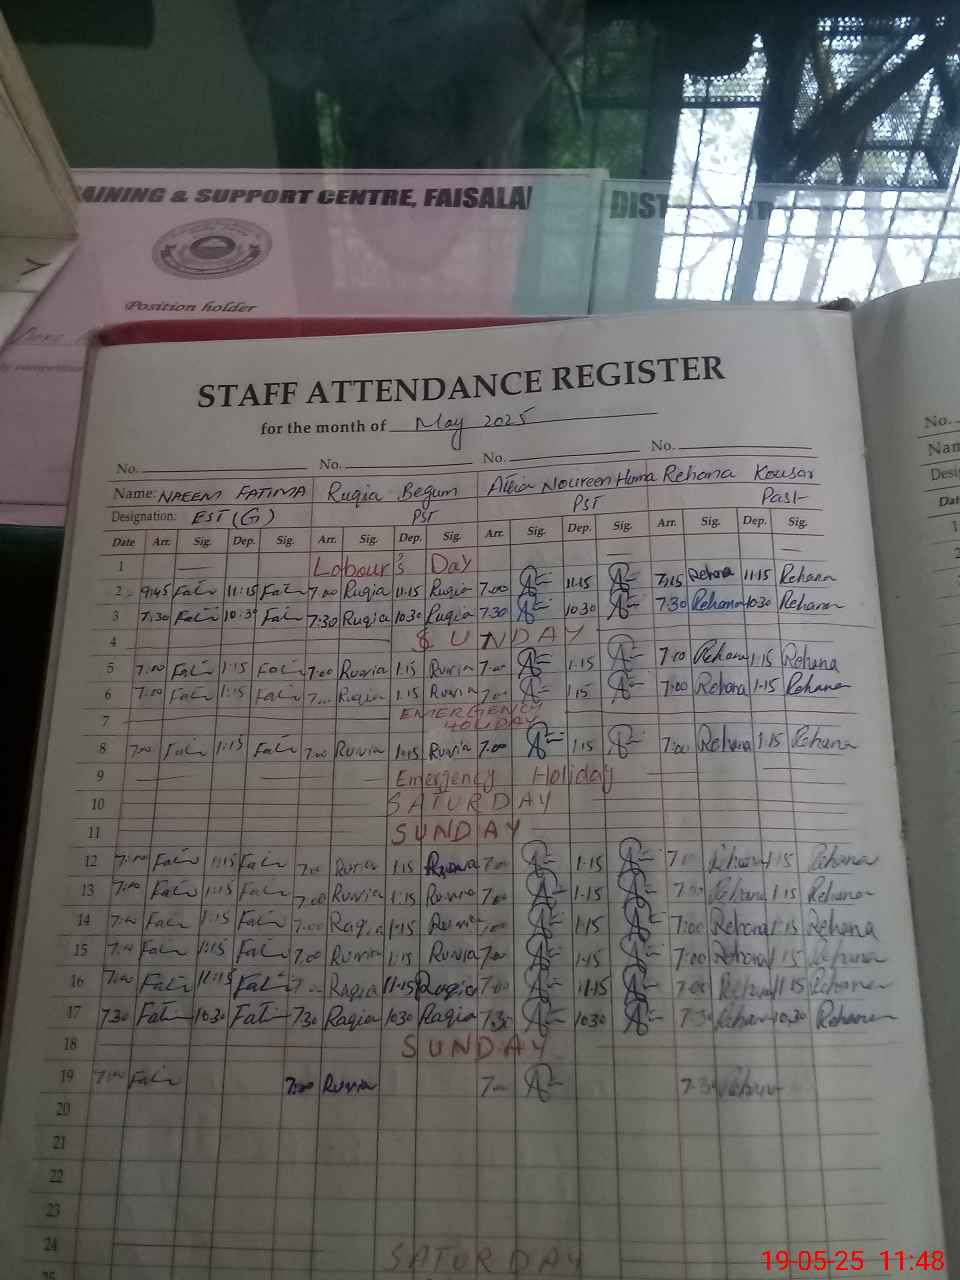 AINING & SUPPORT CENTRE, FAISALA
DIST
Position holder
STAFF ATTENDANCE REGISTER
for the month of May 2025
No. No. No. No.
Name: NAEEM FATIMA Ruqia Begum Noureen Huma Rehana Kousar
Designation: EST (G) PST PST
Date Arr. Sig. Dep. Sig. Arr. Sig. Dep. Sig. Arr. Sig. Dep. Sig. Arr. Sig. Dep. Sig.
1 Labour's Day
2 9:45 11:15 7:00 Ruqia 11.15 Ruqia 7.00 11.15 7:15 Rehana 11.15 Rehana
3 7:30 10:30 7:30 Ruqia 10.30 Ruqia 7.30 10.30 7:30 Rehana 10.30 Rehana
4 SUNDAY
5 7:00 1:15 7:00 1.15 7:00 1.15 7:00 Rehana 1.15 Rehana
6 7:00 1:15 Ruqia 1.15 7:00 1.15 7:00 Rehana 1.15 Rehana
7 EMERGENCY
HOLIDAY
8 7:00 1:15 7:00 1:15 7.00 1.15 7:00 Rehana 1.15 Rehana
9 Emergency Holiday
10 SATURDAY
11 SUNDAY
12 7:00 1:15 7:00 1.15 7:00 1.15 Rehana 1.15 Rehana
13 7:00 1:15 7:00 1.15 7:00 1.15 7:00 Rehana 1.15 Rehana
14 7:00 1:15 7:00 Ruqia 1.15 1.15 7:00 Rehana 1.15 Rehana
15 7:00 1:15 7:00 1.15 7:00 1.15 7:00 Rehana 1.15 Rehana
16 7:00 11:15 Ruqia 11.15 Ruqia 7:00 11.15 7:00 Rehana 11.15 Rehana
17 7:30 10:30 7:30 Ruqia 10:30 Ruqia 7:30 10:30 7:30 Rehana 10.30 Rehana
18 SUNDAY
19 7:00 7:00 7:00 7:30
20
21
22
23
24 SATURDAY
25
No.
Nam
Desig
Dat
1
2
19-05-25 11:48